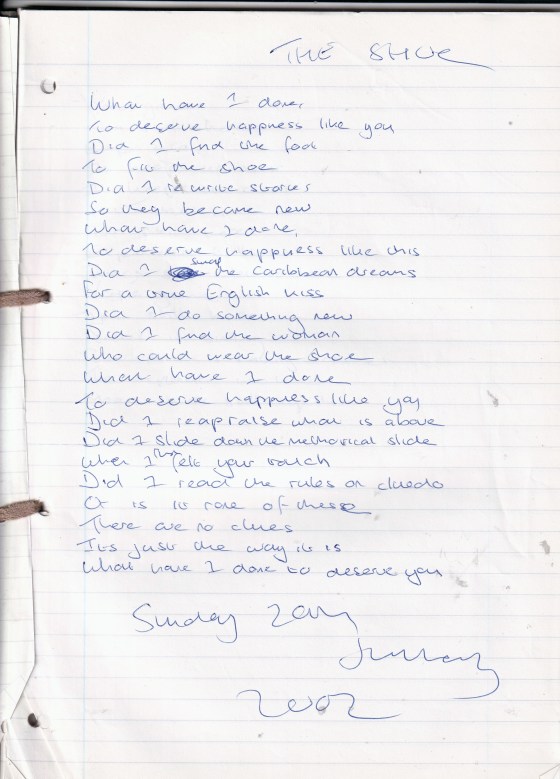 THE SHOE
What have I done,
To deserve happness like you
Did I find the foot
To fit the shoe
Did I rewrite stories
So they became new
What have I done,
To deserve happness like this
Did I swap the Caribbean dreams
For a true English kiss
Did I do something new
Did I find the woman
Who could wear the shoe
What have I done
To deserve happness like you
Did I reapraise what is above
Did I slide down the methorical slide
When I first felt your touch
Did I read the rules on cluedo
Or is it none of these
There are no clues
Its just the way it is
What have I done to deserve you
Sunday 20th
January
2002